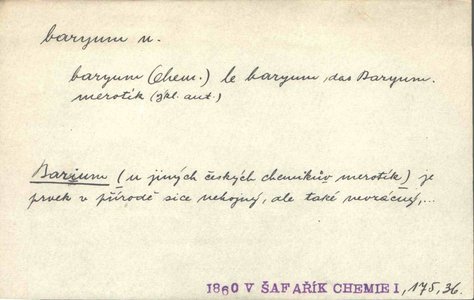 baryum n.
baryum (Chem.) le baryum, das Baryum.
merotík (zkl. aut.)
Barium (u jiných českých chemikův merotík) je
prvek v přírodě sice nehojný, ale také nevzácný,...
1860 V ŠAFAŘÍK CHEMIE I, 175, 36.